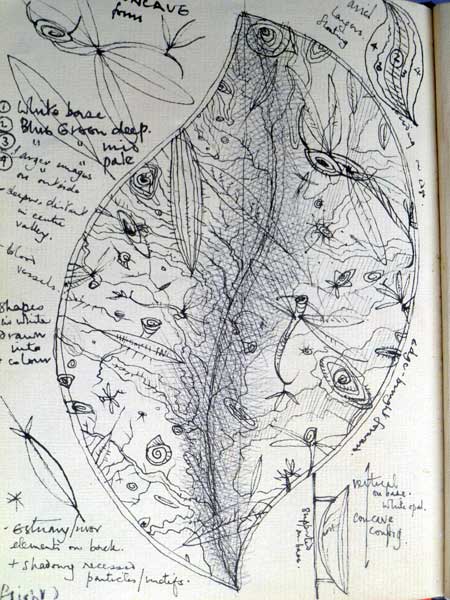 CONCAVE
form
① White base
② Blue Green deep.
③ " " mid
" " pale
④ larger images
on outside
deeper, distant
in centre
valley.
- blood
vessels.
shapes
in white
drawn
into
colour
edge brought forward
vertical
on base.
white opal.
concave
config.
- Estuary/river
elements on back.
+ shadowy recessed
particles/motifs.